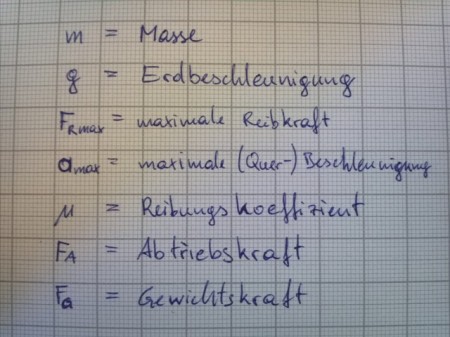 m = Masse
g = Erdbeschleunigung
FRmax = maximale Reibkraft
amax = maximale (Quer-) Beschleunigung
μ = Reibungskoeffizient
FA = Abtriebskraft
FG = Gewichtskraft